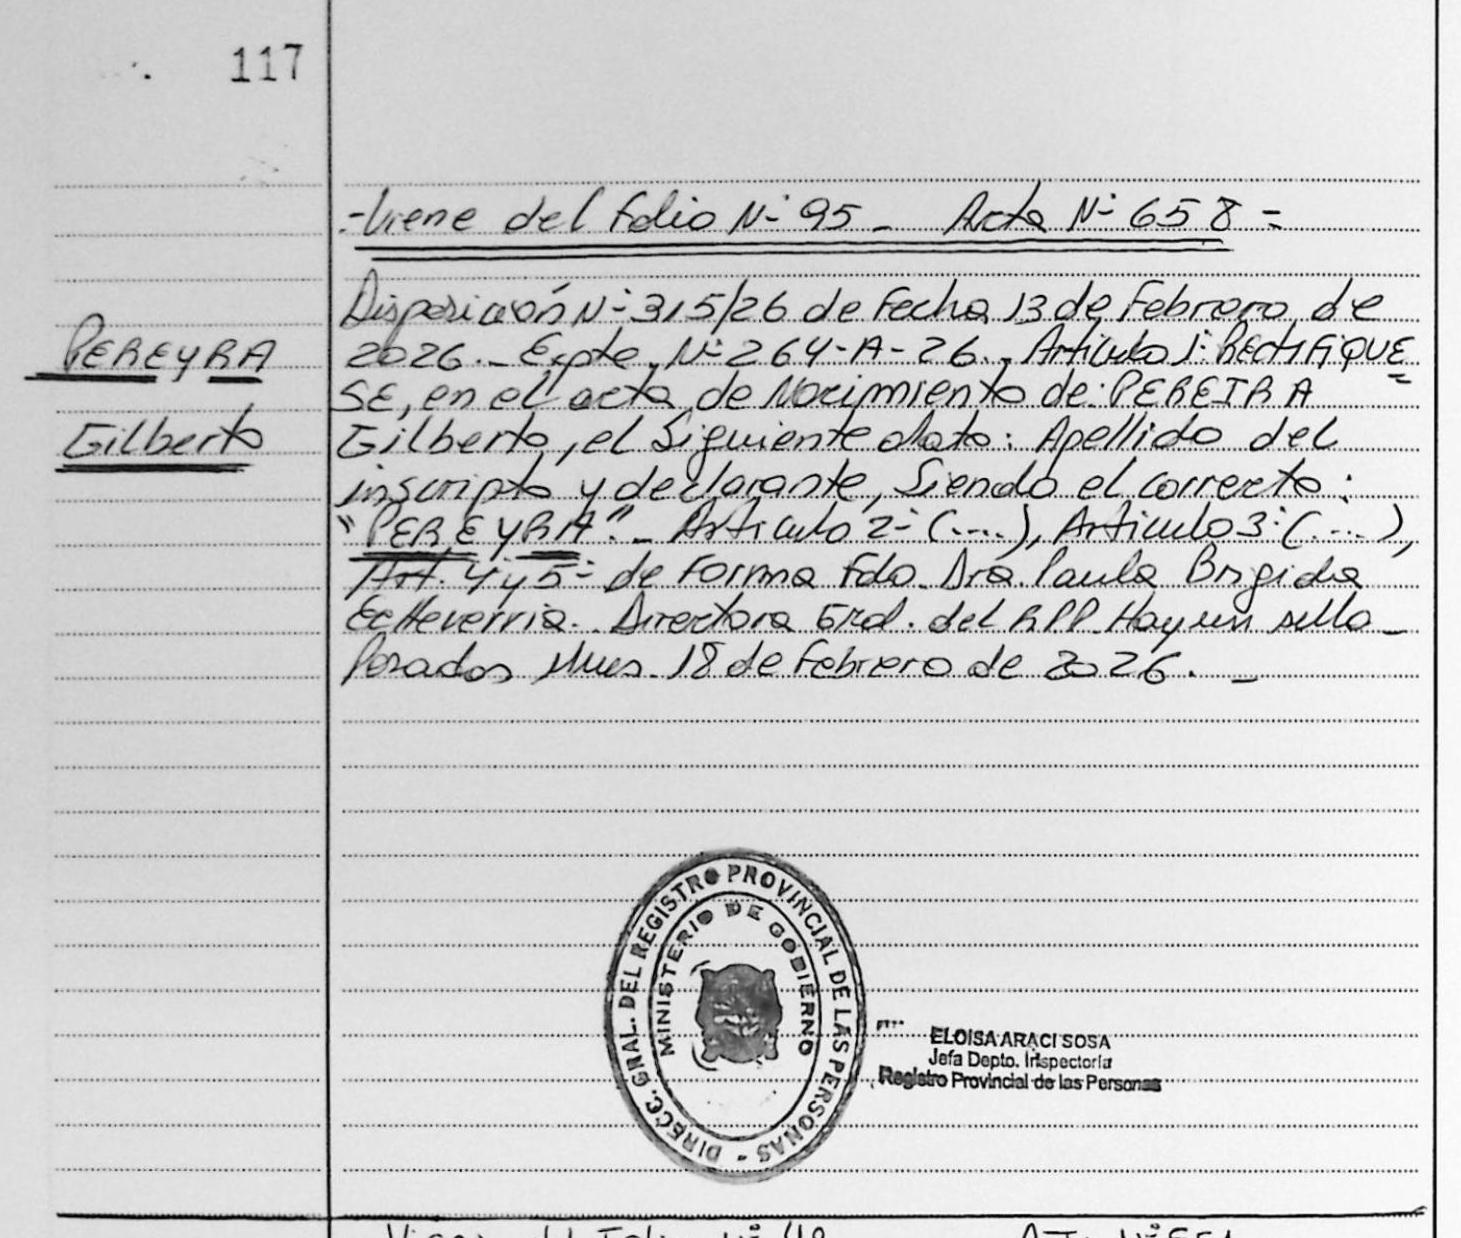 117
-Viene del folio Nº 95 - Acta Nº 658 =
Disposición Nº 315/26 de Fecha 13 de Febrero de
PEREYRA
2026.- Expte. Nº 264-A-26. Artículo 1º: RECTIFIQUE
SE, en el acta de Nacimiento de: PEREIRA
Gilberto
Gilberto, el Siguiente dato: Apellido del
inscripto y declarante, Siendo el correcto:
"PEREYRA".- Artículo 2º (....), Artículo 3º (....),
Art. 4 y 5º de Forma Fdo. Dra Paula Brigida
Echeverria. Directora Gral. del RPP. Hay un sello -
Posadas Mnes. 18 de Febrero de 2026. -
DIRECC. GRAL. DEL REGISTRO PROVINCIAL DE LAS PERSONAS -
MINISTERIO DE GOBIERNO
ELOISA ARACI SOSA
Jefa Depto. Inspectoría
Registro Provincial de las Personas